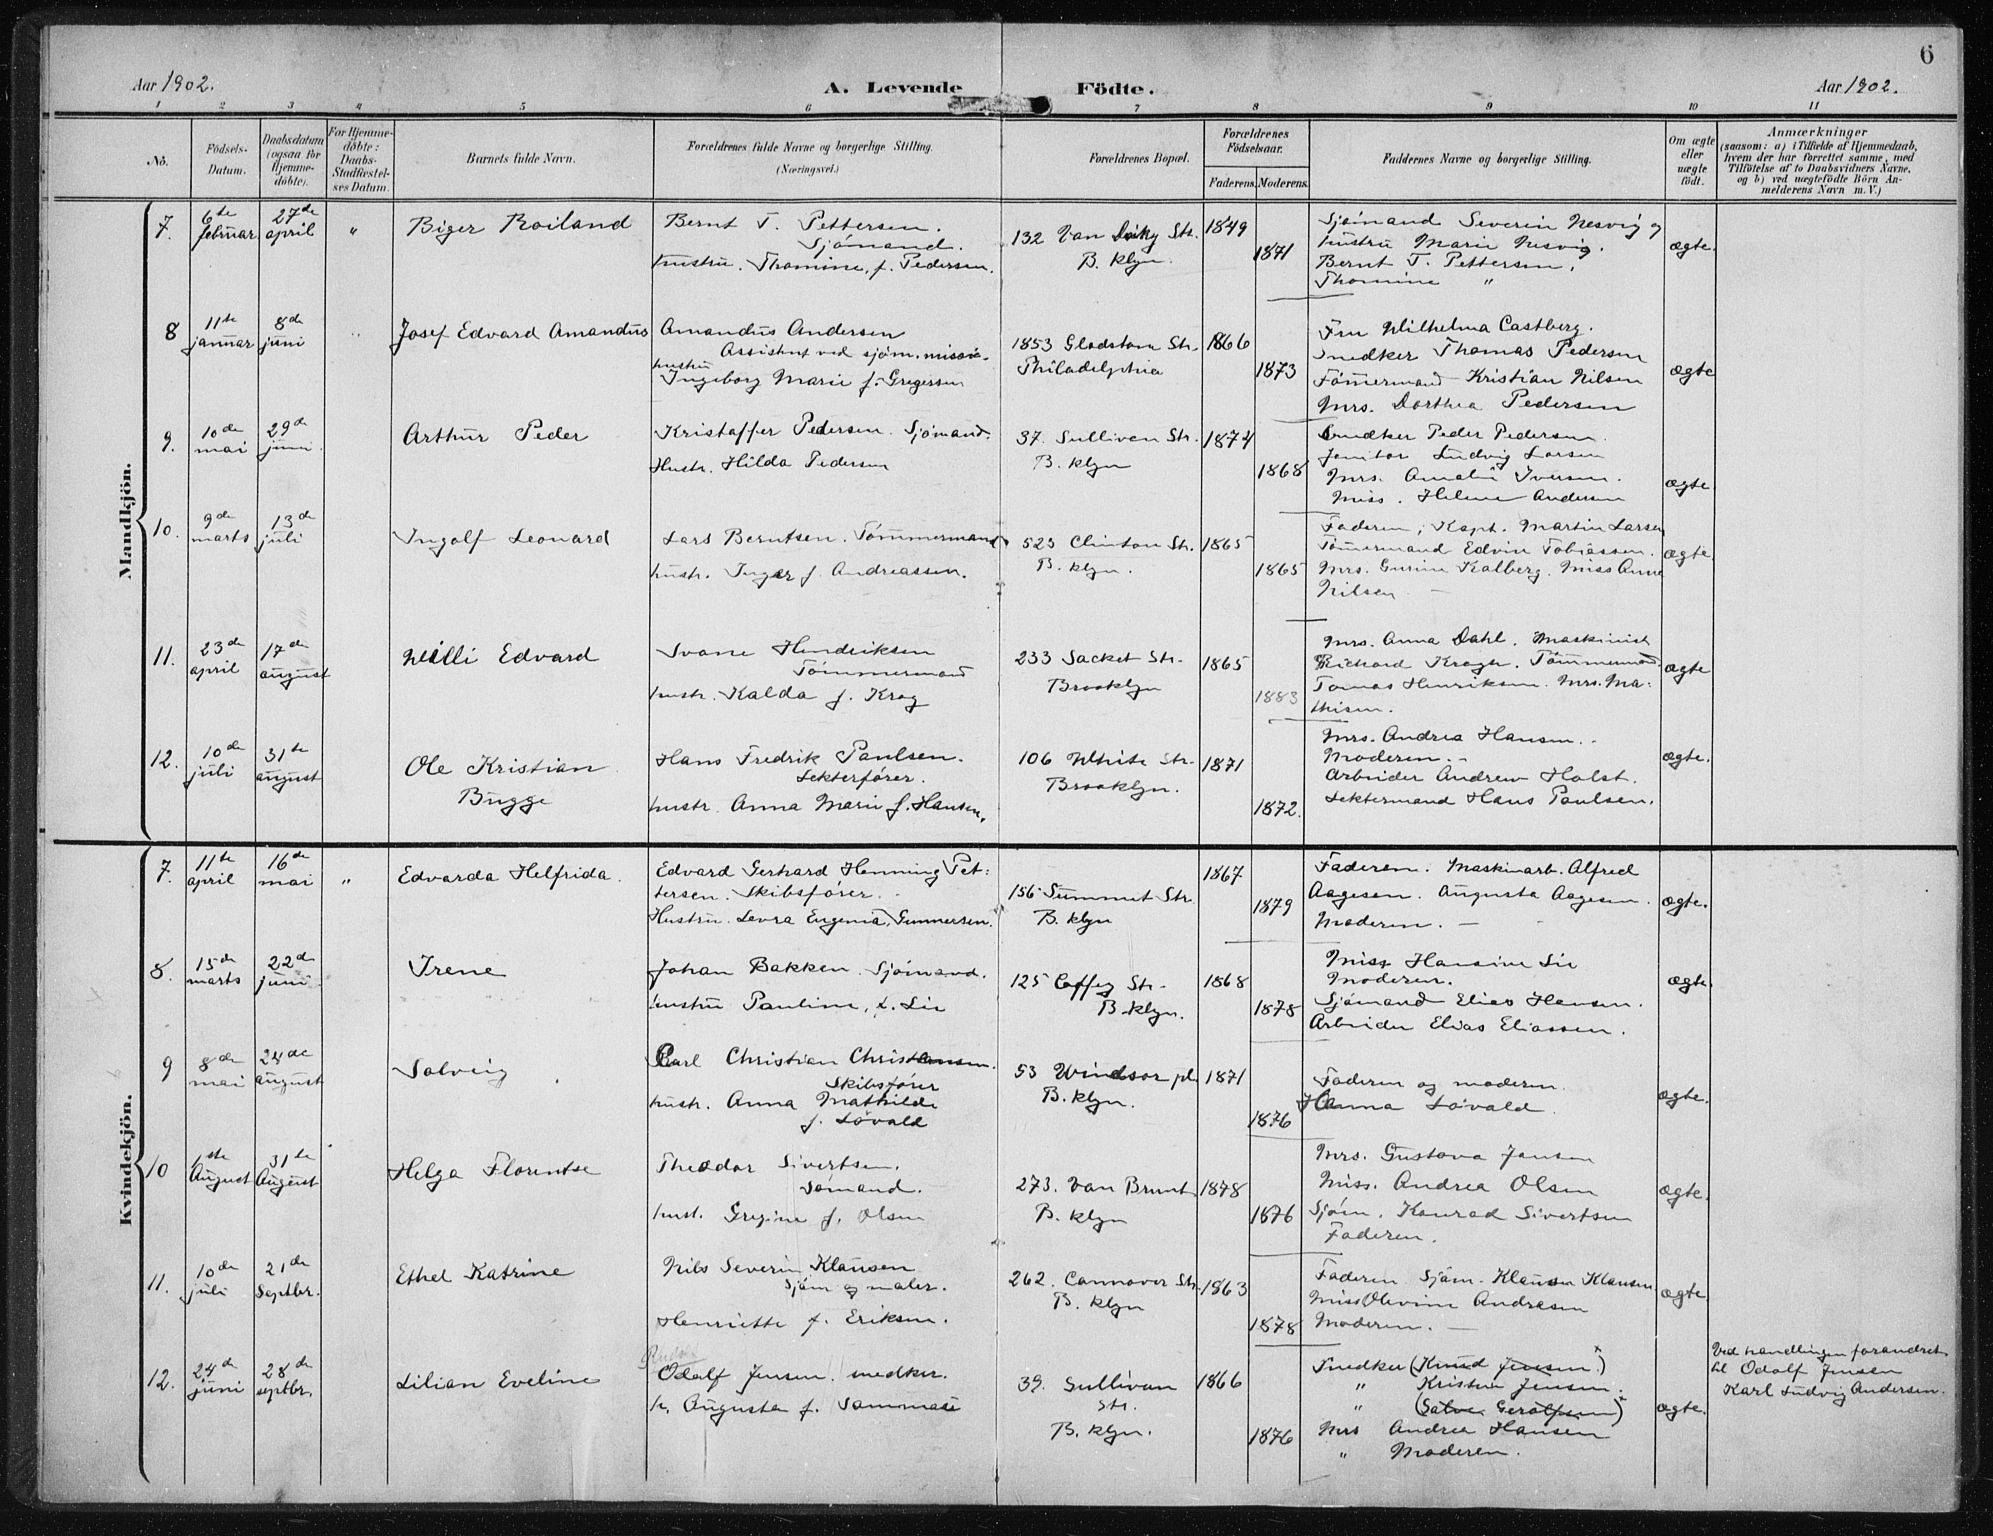 6
Aar 1902.
A. Levende Födte.
Aar 1902.
1 2 3 4 5 6 7 8 9 10 11
No.
Födsels-Datum.
Daabsdatum (ogsaa for Hjemme-döbte).
For Hjemme-döbte: Daabs-Stadfæstel-ses Datum.
Barnets fulde Navn.
Forældrenes fulde Navne og borgerlige Stilling.
(Næringsvei.)
Forældrenes Bopæl.
Forældrenes Födselsaar.
Faderens. Moderens.
Faddernes Navne og borgerlige Stilling.
Om ægte eller uægte födt.
Anmærkninger
(saasom: a) i Tilfælde af Hjemmedaab,
hvem der har forrettet samme, med
Tilföielse af to Daabsvidners Navne,
og b) ved uægtefödte Börn An-
melderens Navn m. V.)
Mandkjön.
7. 6te februar 27de april "
Biger Roiland
Bernt T. Pettersen.
Sjömand.
hustru. Thomine, f. Pedersen.
132 Van Str.
B. klyn.
1849
1871
Sjömand Severin Nesvig og
hustru Marie Nesvig.
Bernt T. Pettersen,
Thomine "
ægte.
8 11te januar 8de juni
Josef Edvard Amandus
Amandus Andersen
Assistent ved sjöm. missio-
hustru
Ingeborg Marie f. Gregersen
1853 Gladstone Str.
Philadelphia
1866
1873
Fru Wilhelma Castberg.
Snedker Thomas Pedersen
Tömmermand Kristian Nilsen
Mrs. Dorthea Pedersen
ægte
9. 10de mai 29de juni.
Arthur Peder
Kristoffer Pedersen. Sjömand.
Hustr. Hilda Pedersen
37. Sullivan Str.
B. klyn
1874
1868
Snedker Peder Pedersen.
Janitor Ludvig Larsen
Mrs. Amalie Iversen.
Miss. Helene Andersen
ægte
10. 9de marts 13de juli
Ingolf Leonard
Lars Berntsen. Tömmermand
hustr. Inger f. Andreassen.
523 Clinton Str.
B. klyn.
1865
1865
Faderen, Kapt. Martin Larsen
Tömmermand Edvin Tobiassen.
Mrs. Gurine Kalberg. Miss Anne
Nilsen —
ægte
11. 23de april 17de august
Willi Edvard
Svane Hendriksen
Tömmermand
hustr. Kalda f. Krog
233 Sacket Str.
Brooklyn
1865
1883
Mrs. Anna Dahl. Maskinist
Richard Krogh. Tömmermand
Tomas Henriksen. Mrs. Ma-
thisen.
ægte
12. 10de juli 31te august
Ole Kristian
Bugge
Hans Fredrik Paulsen.
Lekterförer.
hustr. Anna Marie f. Hansen.
106 White Str.
Brooklyn.
1871
1872.
Mrs. Andrea Hansen.
Moderen.
Arbeider Andrew Holst.
Lektermand Hans Paulsen.
ægte.
Kvindekjön.
7. 11te april 16de mai "
Edvarda Helfrida.
Edvard Gerhard Henning Pet-
tersen. Skibsförer.
Hustru. Levra Eugenia, Gunnersen.
156 Summet Str.
B. klyn
1867
1879
Faderen. Maskinarb. Alfred
Aagesen. Augusta Aagesen.
Moderen. —
ægte.
8. 15de marts 22de juni "
Irene
Johan Bakken. Sjömand.
hustru Pauline, f. Lie
125 Coffey Str.
B. klyn.
1868
1878
Miss Hansine Lie
Moderen.
Sjömand Elias Hansen.
Arbeider Elias Eliassen.
ægte.
9 8de mai 24de august
Solveig
Carl Christian Christansen.
Skibsförer
hustr. Anna Mathilde
f. Lövald
53 Windsor pl.
B. klyn.
1871
1876
Faderen og moderen.
Hanna Lövald.
ægte.
10 1ste August 31te August
Helga Florentse
Theodor Sivertsen.
Sömand.
hust. Gregine f. Olsen
273. Van Brunt
B. klyn
1878
1876
Mrs. Gustava Jansen
Miss. Andrea Olsen
Sjöm. Konrad Sivertsen
Faderen.
ægte.
11. 10de juli 21de Septbr.
Ethel Katrine
Nils Severin Klausen
Sjöm og maler.
Henriette f. Eriksen.
262. Cannover Str.
B. klyn
1863
1878
Faderen. Sjöm. Klausen Klausen
Miss Olevine Andresen
Moderen. —
ægte
12. 24de juni 28de septbr.
Lilian Eveline
Odolf Jensen. snedker.
h. Augusta f. Sammasi
39. Sullivan
Str.
B. klyn.
1866
1876
Snedker (Knud Jensen)
" Kristen Jensen.
" (Salve Gerolfsen)
Mrs Andrea Hansen
" Moderen.
ægte.
Ved handlingen forandret
til Odolf Jensen
Karl Ludvig Andersen.